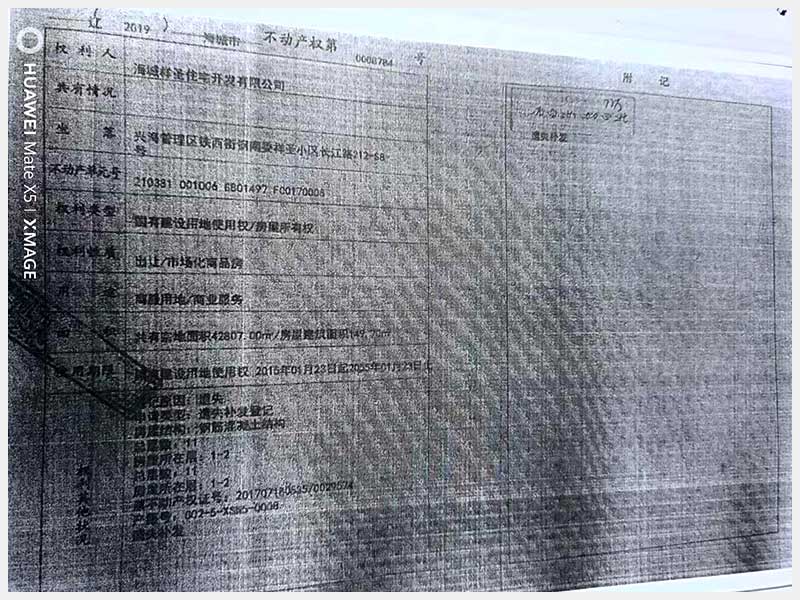 辽（ 2019 ） 海城市 不动产权第 0008784 号
权利人 海城祥圣住宅开发有限公司
共有情况
坐落 兴海管理区铁西街钢南委祥圣小区长江路212-S8号
不动产单元号 210381 001006 GB01497 F00170008
权利类型 国有建设用地使用权/房屋所有权
权利性质 出让/市场化商品房
用途 商服用地/商业服务
面积 共有宗地面积42807.00㎡/房屋建筑面积149.70㎡
使用期限 国有建设用地使用权 2015年01月23日起2055年01月23日止
权利其他状况
登记原因：遗失
申请类型：遗失补发登记
房屋结构：钢筋混凝土结构
总层数：11
房屋所在层：1-2
总层数：11
房屋所在层：1-2
原不动产权证号：
产籍号：002-5-XSN5-0008
遗失补发
附 记
遗失补发
HUAWEI Mate X5 | XMAGE